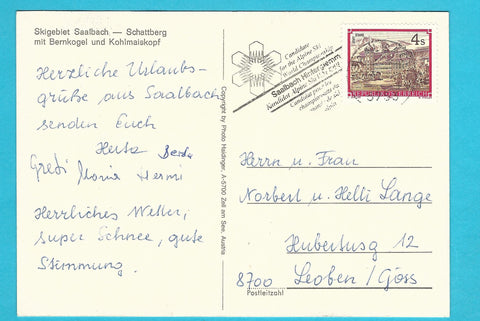 Skigebiet Saalbach — Schattberg
mit Bernkogel und Kohlmaiskopf
Herzliche Urlaubs-
grüße aus Saalbach
senden Euch
Herta Berta
Gredi Maria Hermi
Herrliches Wetter,
super Schnee, gute
Stimmung.
Copyright by Photo Haidinger, A-5700 Zell am See, Austria
Candidate
for the Alpine Ski
World Championship
Saalbach Hinterglemm
Kandidat Alpine Ski
4 S
REPUBLIK ÖSTERREICH
Herrn u. Frau
Norbert u. Helli Lange
Hubertusg 12
8700 Leoben / Göss
Postleitzahl